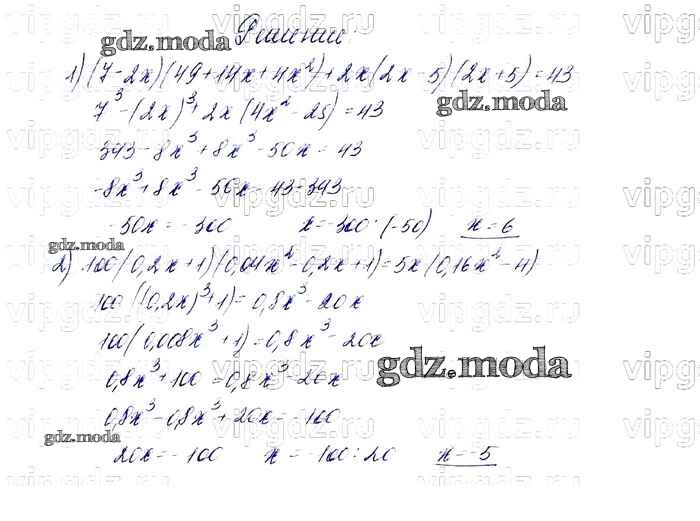 Решение
gdz.moda
1) (7-2x)(49+14x+4x²)+2x(2x-5)(2x+5)=43
7³-(2x)³+2x(4x²-25)=43
gdz.moda
343-8x³+8x³-50x=43
-8x³+8x³-50x=43-343
-50x=-300 x=-300:(-50) x=6
gdz.moda
2) 100(0,2x+1)(0,04x²-0,2x+1)=5x(0,16x²-4)
100((0,2x)³+1)=0,8x³-20x
100(0,008x³+1)=0,8x³-20x
gdz.moda
0,8x³+100=0,8x³-20x
0,8x³-0,8x³+20x=-100
gdz.moda
20x=-100 x=-100:20 x=-5